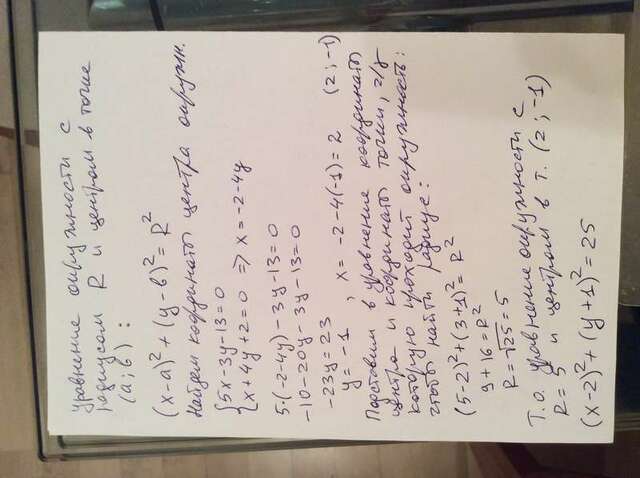 уравнение окружности с
радиусом R и центром в точке
(а; в) :
(x-a)² + (y-в)² = R²
Найдем координаты центра окружн.
{5x-3y-13=0
{x+4y+2=0 => x=-2-4y
5·(-2-4y)-3y-13=0
-10-20y-3y-13=0
-23y=23
y=-1 , x= -2-4(-1)=2 (2;-1)
Подставим в уравнение координаты
центра и координаты точки, ч/з
которую проходит окружность:
чтобы найти радиус:
(5-2)²+(3+1)²=R²
9+16=R²
R=√25=5
Т.о. уравнение окружности с
R=5 и центром в т. (2;-1)
(x-2)²+(y+1)²=25